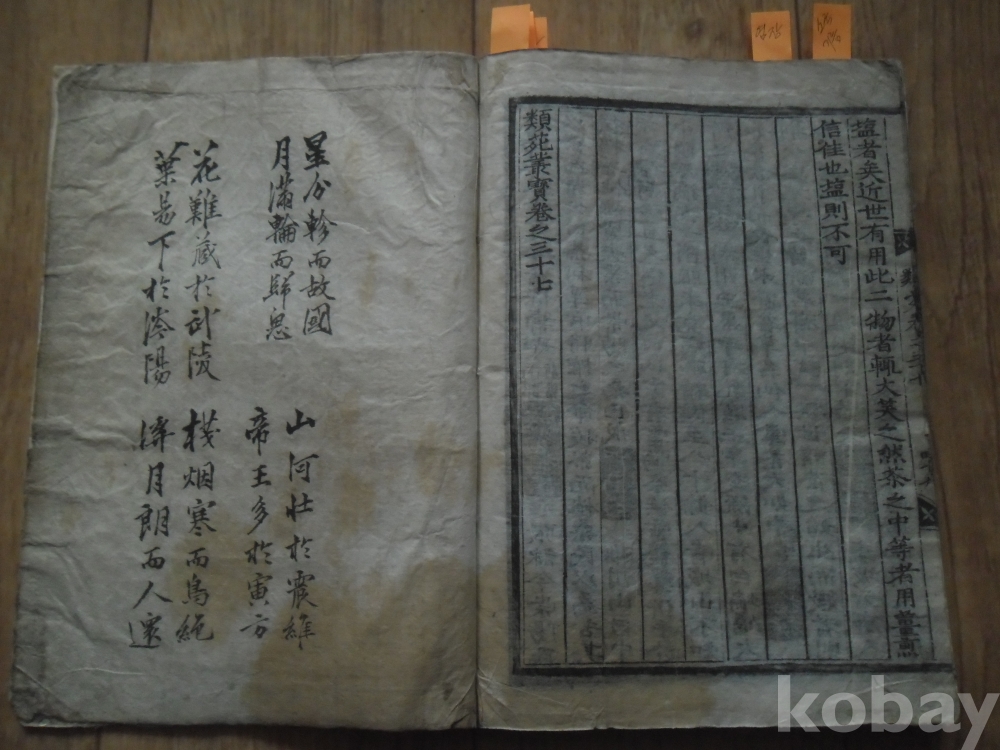 鹽者矣近世有用此二物者輒大笑之然茶之中等者用薑煎
信佳也鹽則不可
類苑叢寶卷之三十七
星分軫而故國
月滿輪而歸思
花難藏於武陵
葉易下於洛陽
山河壯於震維
帝王多於寅方
棧烟寒而鳥絶
津月朗而人還
kobay